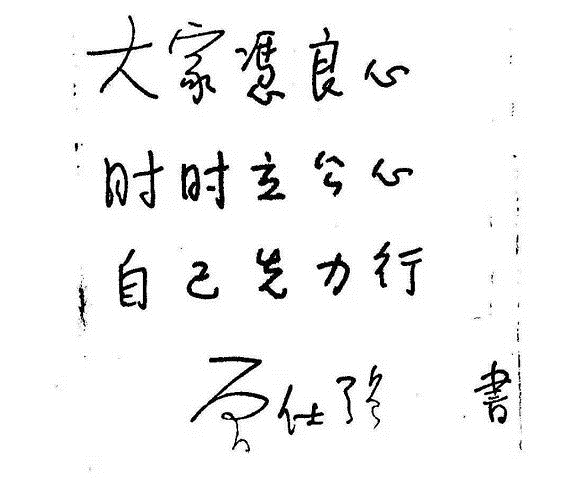 大家憑良心
时时立公心
自己先力行
曾仕强 書